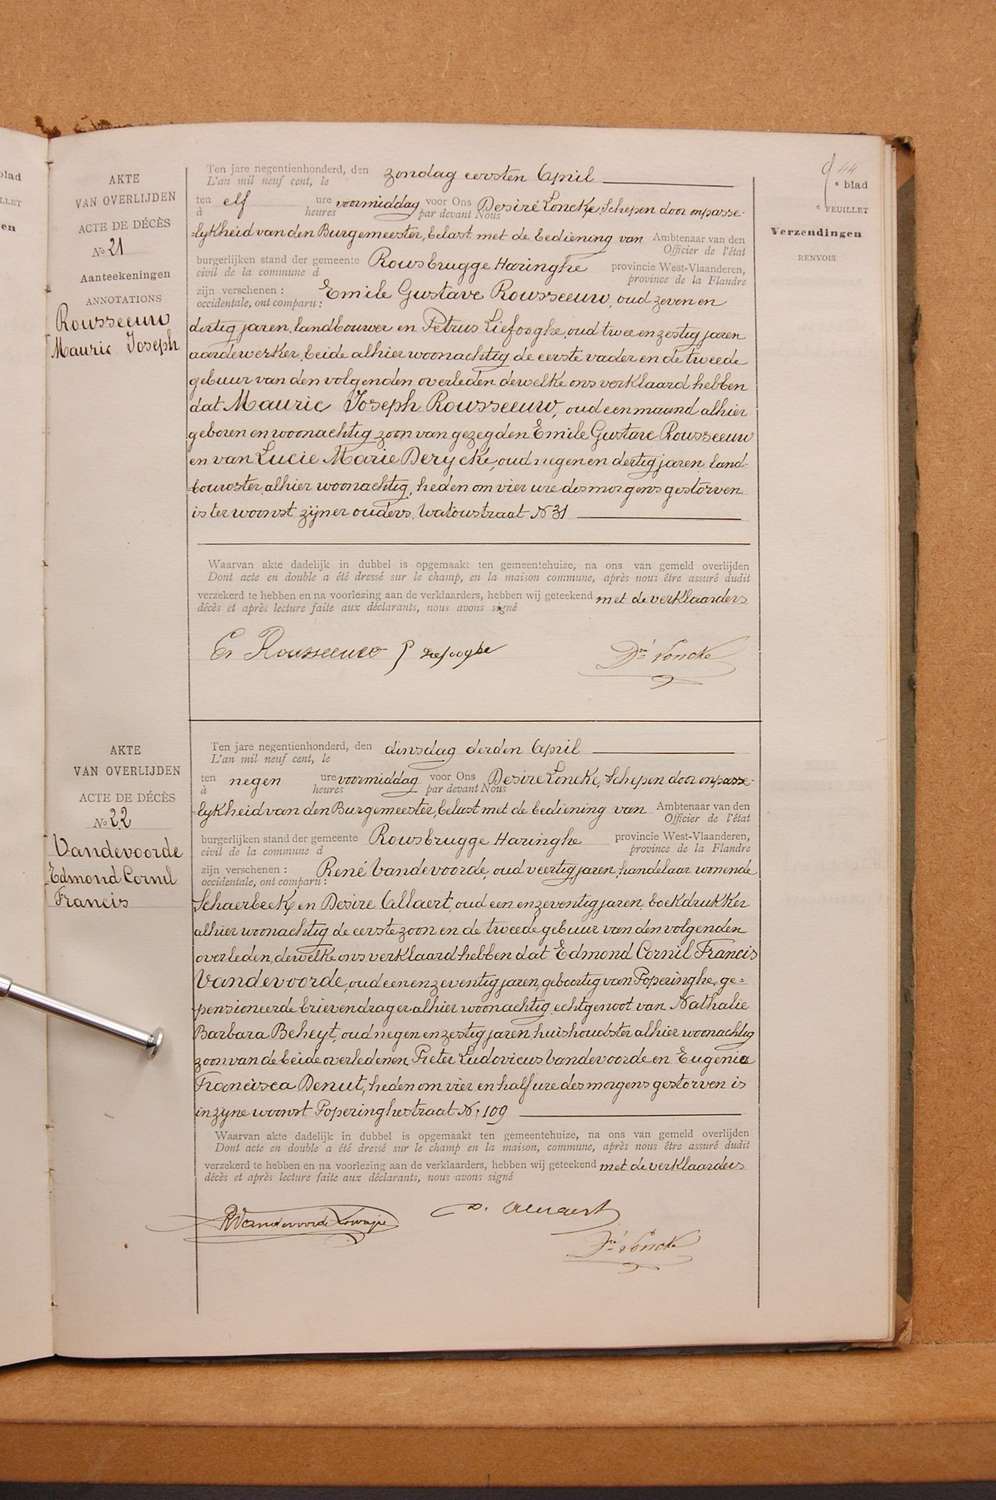 AKTE
VAN OVERLIJDEN
ACTE DE DÉCÈS
No 21
Aanteekeningen
ANNOTATIONS
Rousseeuw
Mauric Joseph
44
e blad
e FEUILLET
Verzendingen
RENVOIS
Ten jare negentienhonderd, den zondag eersten April
L'an mil neuf cent, le
ten elf ure voormiddag voor Ons Desiré Voncke, Schepen door onpasse-
à heures par devant Nous
lykheid van den Burgemeester, belast met de bediening van Ambtenaar van den
Officier de l'état
burgerlijken stand der gemeente Rousbrugge Haringhe provincie West-Vlaanderen,
civil de la commune d province de la Flandre
zijn verschenen : Emile Gustave Rousseeuw, oud zeven en
occidentale, ont comparu :
dertig jaren, landbouwer en Petrus Liefooghe, oud twee en zestig jaren
aardewerker, beide alhier woonachtig de eerste vader en de tweede
gebuur van den volgenden overleden dewelke ons verklaard hebben
dat Mauric Joseph Rousseeuw, oud een maand alhier
geboren en woonachtig zoon van gezegden Emile Gustave Rousseeuw
en van Lucie Marie Derycke, oud negen en dertig jaren, land-
bouwster, alhier woonachtig, heden om vier ure des morgens gestorven
is ter woonst zijner ouders, Watoustraat No 31
Waarvan akte dadelijk in dubbel is opgemaakt ten gemeentehuize, na ons van gemeld overlijden
Dont acte en double a été dressé sur le champ, en la maison commune, après nous être assuré dudit
verzekerd te hebben en na voorlezing aan de verklaarders, hebben wij geteekend met de verklaarders
décès et après lecture faite aux déclarants, nous avons signé
Er Rousseeuw P Liefooghe Dré Voncke
AKTE
VAN OVERLIJDEN
ACTE DE DÉCÈS
No 22
Vandevoorde
Edmond Cornil
Francis
Ten jare negentienhonderd, den dinsdag derden April
L'an mil neuf cent, le
ten negen ure voormiddag voor Ons Desiré Voncke, Schepen door onpasse-
à heures par devant Nous
lykheid van den Burgemeester, belast met de bediening van Ambtenaar van den
Officier de l'état
burgerlijken stand der gemeente Rousbrugge Haringhe provincie West-Vlaanderen,
civil de la commune d province de la Flandre
zijn verschenen : René Vandevoorde, oud veertig jaren, handelaar wonende
occidentale, ont comparu :
Schaerbeek, en Desire Allaert, oud een en zeventig jaren, boekdrukker
alhier woonachtig de eerste zoon en de tweede gebuur van den volgenden
overleden, dewelke ons verklaard hebben dat Edmond Cornil Francis
Vandevoorde, oud een en zeventig jaren, geboortig van Poperinghe, ge-
pensioneerde brievendrager alhier woonachtig echtgenoot van Nathalie
Barbara Beheyt, oud negen en zestig jaren, huishoudster alhier woonachtig
zoon van de beide overledenen, Pieter Ludovicus Vandevoorde en Eugenia
Francisca Denut, heden om vier en half ure des morgens gestorven is
in zyne woonst Poperinghestraat No 109
Waarvan akte dadelijk in dubbel is opgemaakt ten gemeentehuize, na ons van gemeld overlijden
Dont acte en double a été dressé sur le champ en la maison, commune, après nous être assuré dudit
verzekerd te hebben en na voorlezing aan de verklaarders, hebben wij geteekend met de verklaarders
décès et après lecture faite aux déclarants, nous avons signé
RVandevoorde D. Allaert
Dré Voncke